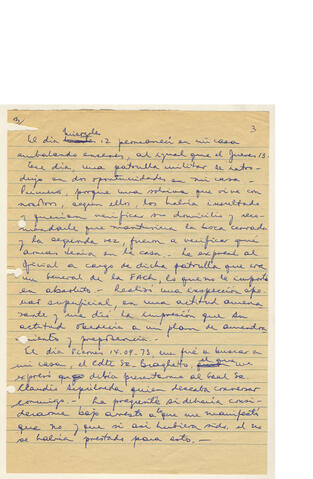 3
El día Miércoles 12 permanecí en mi casa
embalando enseres, al igual que el Jueves 13.
Ese día una patrulla militar se intro-
dujo en dos oportunidades en mi casa.
Primero, porque una sobrina que vive con
nosotros, según ellos, los había insultado
y querían verificar su domicilio y reco-
mendarle que mantuviera la boca cerrada
y la segunda vez, fueron a verificar qué
armas tenía en la casa. Le expresé al
Oficial a cargo de dicha patrulla que era
un General de la FACh, lo que no le importó
en absoluto. Realizó una inspección ape-
nas superficial, en una actitud amena
zante y me dió la impresión que su
actitud obedecía a un plan de amedren
tamiento y prepotencia.
El día Viernes 14.09.73, me fué a buscar a
mi casa, el Cdte. Sr. el que me
expresó que debía presentarme al Gral Sr.
Claudio Sepúlveda quien deseaba conversar
conmigo. - Le pregunté si debería consi-
derarme bajo arresto a lo que me manifestó
que no y que si así hubiera sido, él no
se habría prestado para esto. -